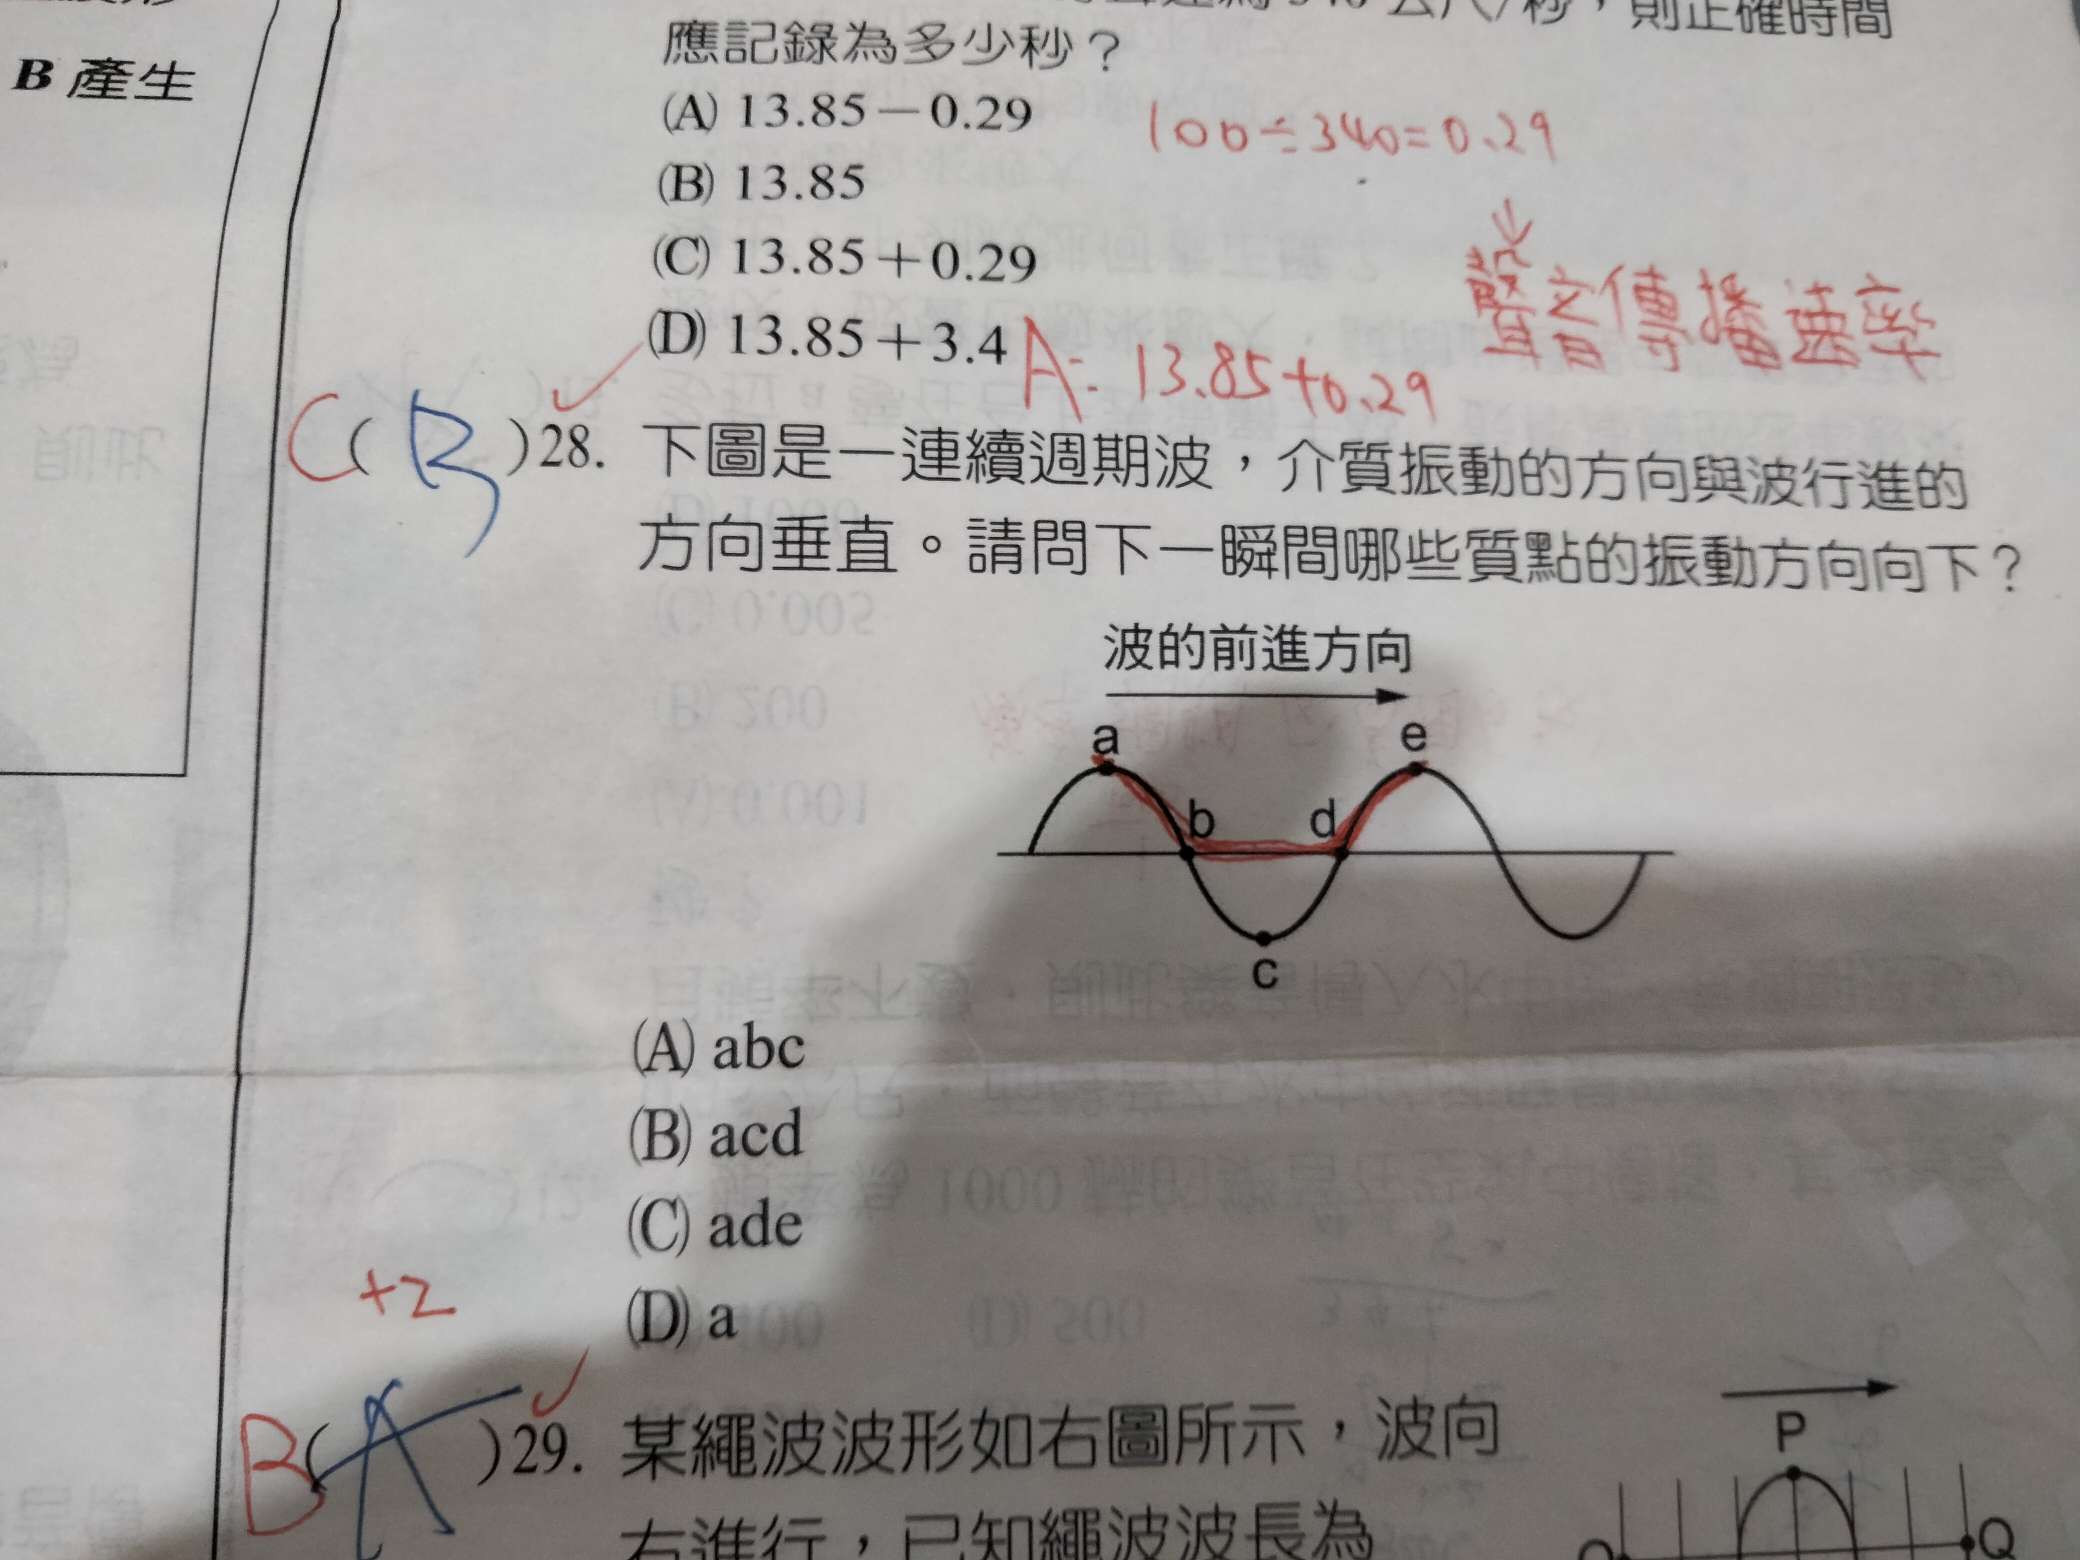 B 產生
340 公尺/秒，則正確時間
應記錄為多少秒？
(A) 13.85－0.29
100÷340=0.29
(B) 13.85
(C) 13.85＋0.29
↓
聲音傳播速率
(D) 13.85＋3.4
A: 13.85+0.29
C( B )28. 下圖是一連續週期波，介質振動的方向與波行進的
方向垂直。請問下一瞬間哪些質點的振動方向向下？
波的前進方向
a
e
b
d
c
(A) abc
(B) acd
(C) ade
+2
(D) a
B( A )29. 某繩波波形如右圖所示，波向
右進行，已知繩波波長為
P
Q